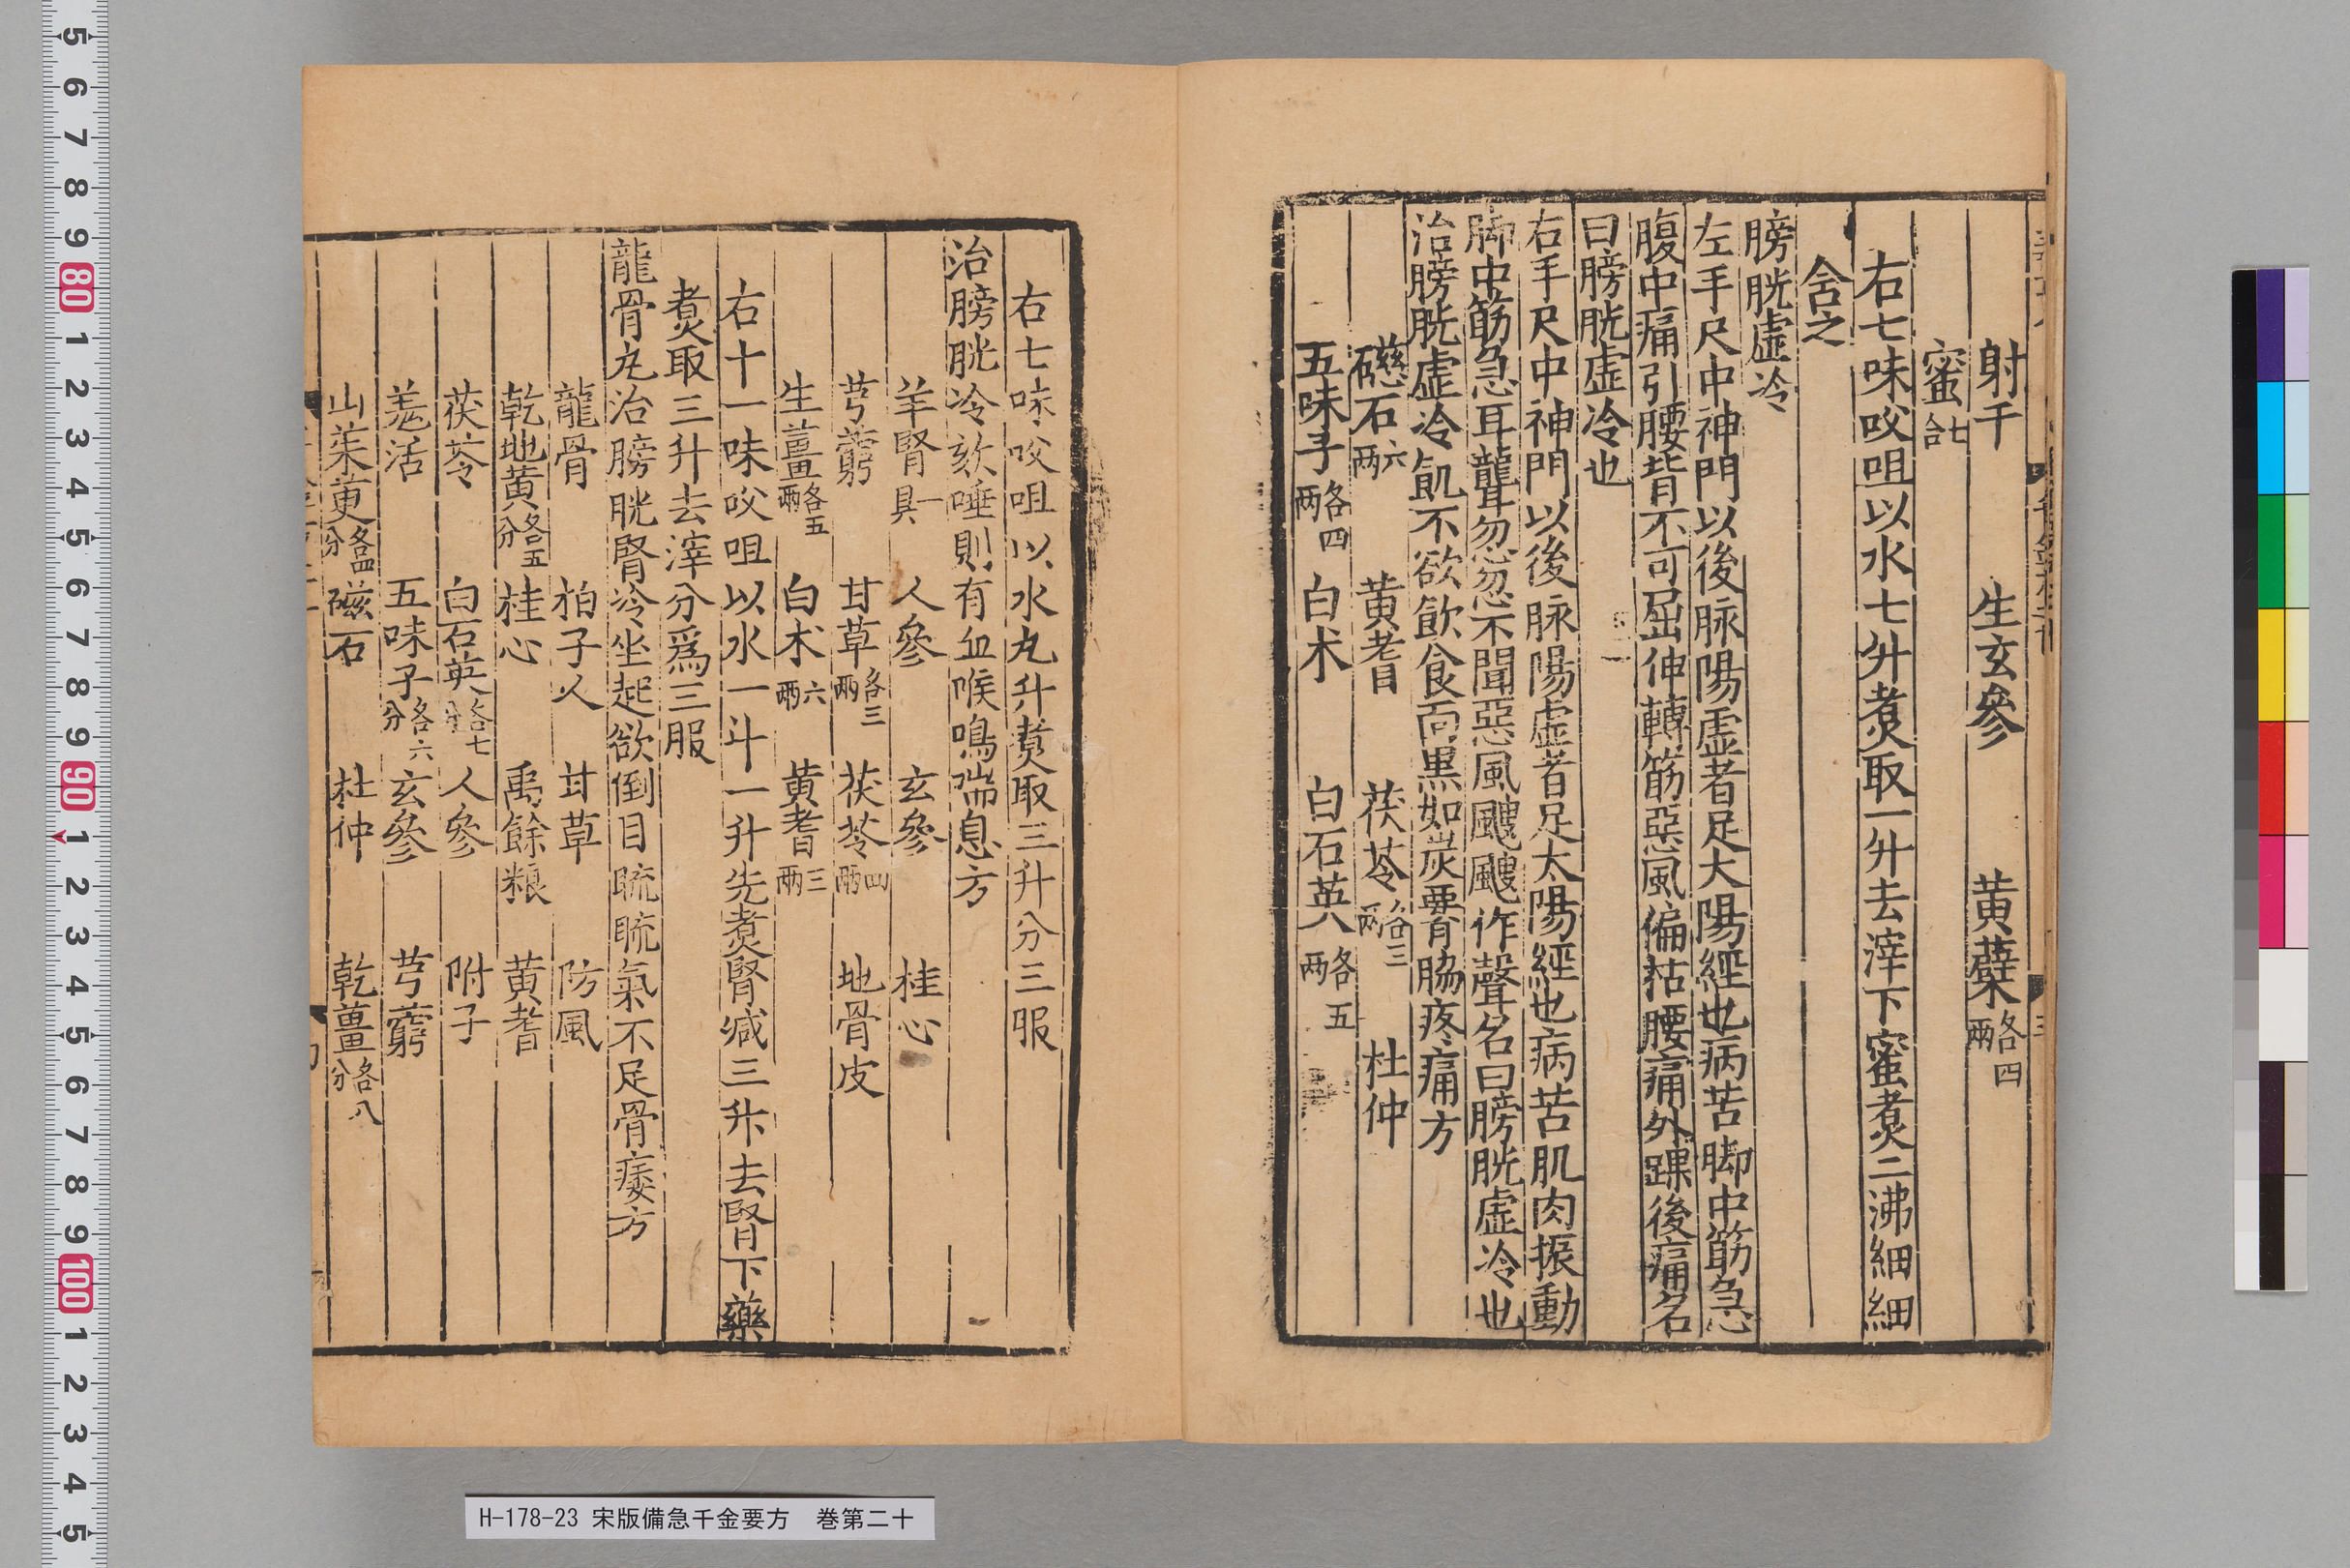 射干 生玄參 黄蘗各四兩
蜜七合
右七味㕮咀以水七升煑取一升去滓下蜜煑二沸細細
含之
膀胱虚冷
左手尺中神門以後脉陽虚者足太陽經也病苦脚中筋急
腹中痛引腰背不可屈伸轉筋惡風偏枯腰痛外踝後痛名
曰膀胱虚冷也
右手尺中神門以後脉陽虚者足太陽經也病苦肌肉振動
脚中筋急耳聾忽忽不聞惡風颼颼作聲名曰膀胱虚冷也
治膀胱虚冷飢不欲飲食面黒如炭腰脇疼痛方
礠石六兩 黄耆 茯苓各三兩 杜仲
五味子各四兩 白术 白石英各五兩
右七味㕮咀以水九升煑取三升分三服
治膀胱冷欬唾則有血喉鳴喘息方
羊腎一具 人參 玄參 桂心
芎藭 甘草各三兩 茯苓四兩 地骨皮
生薑各五兩 白术六兩 黄耆三兩
右十一味㕮咀以水一斗一升先煑腎减三升去腎下藥
煑取三升去滓分爲三服
龍骨丸治膀胱腎冷坐起欲倒目䀮䀮氣不足骨痿方
龍骨 柏子人 甘草 防風
乾地黄各五分 桂心 禹餘粮 黄耆
茯苓 白石英各七分 人參 附子
羌活 五味子各六分 玄參 芎藭
山茱萸各四分 磁石 杜仲 乾薑各八分
H-178-23 宋版備急千金要方 巻第二十
5 6 7 8 9 80 1 2 3 4 5 6 7 8 9 90 1 2 3 4 5 6 7 8 9 100 1 2 3 4 5